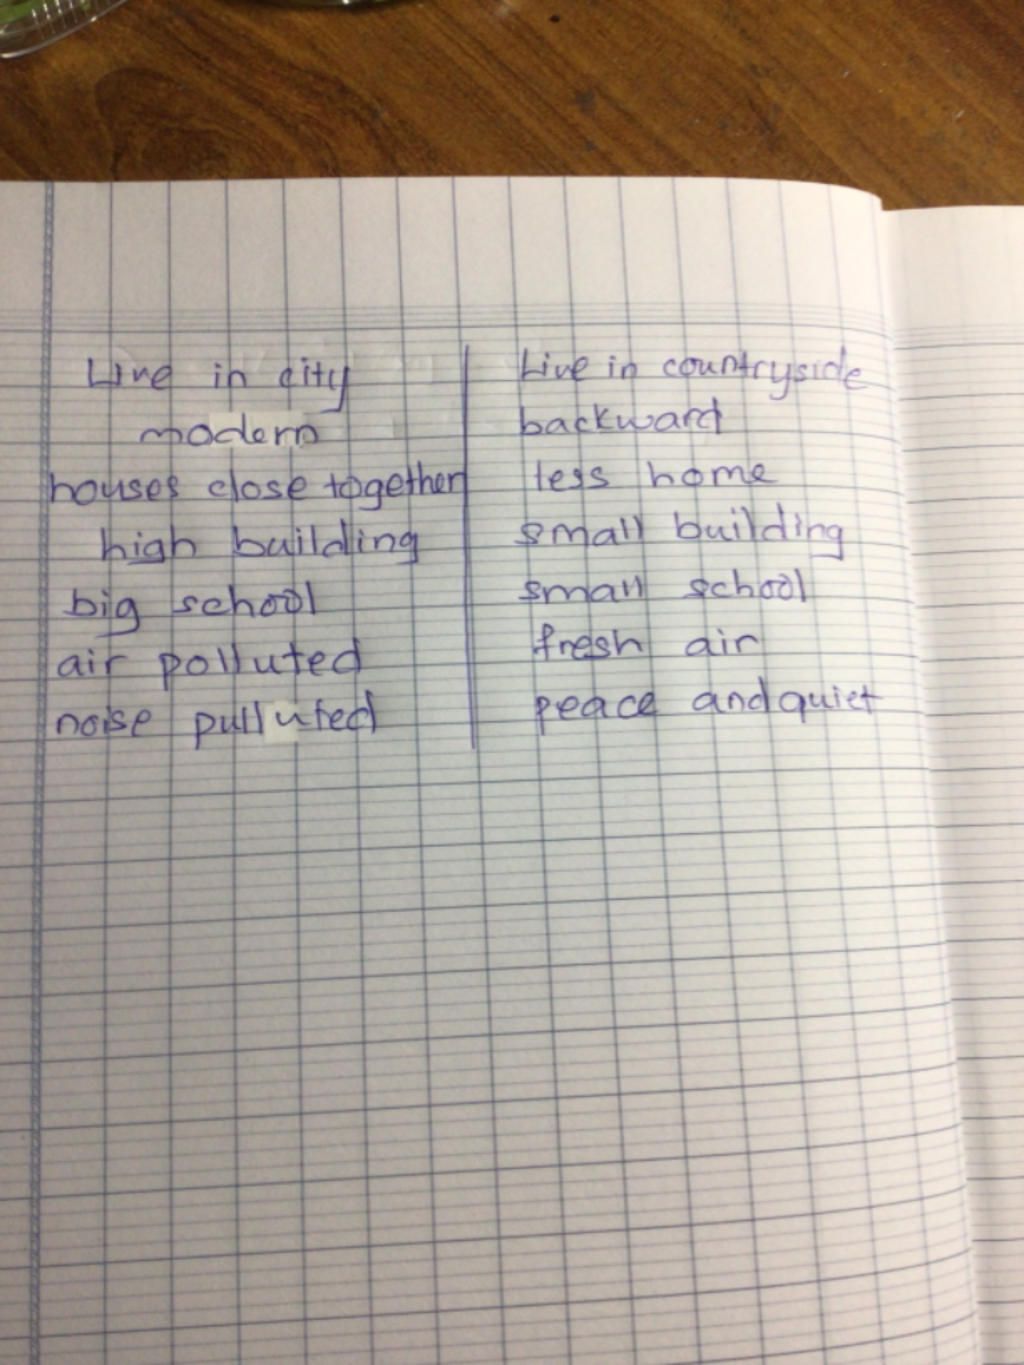 Live in city
modern
houses close together
high building
big school
air polluted
noise pulluted
Live in countryside
backward
less home
small building
small school
fresh air
peace and quiet